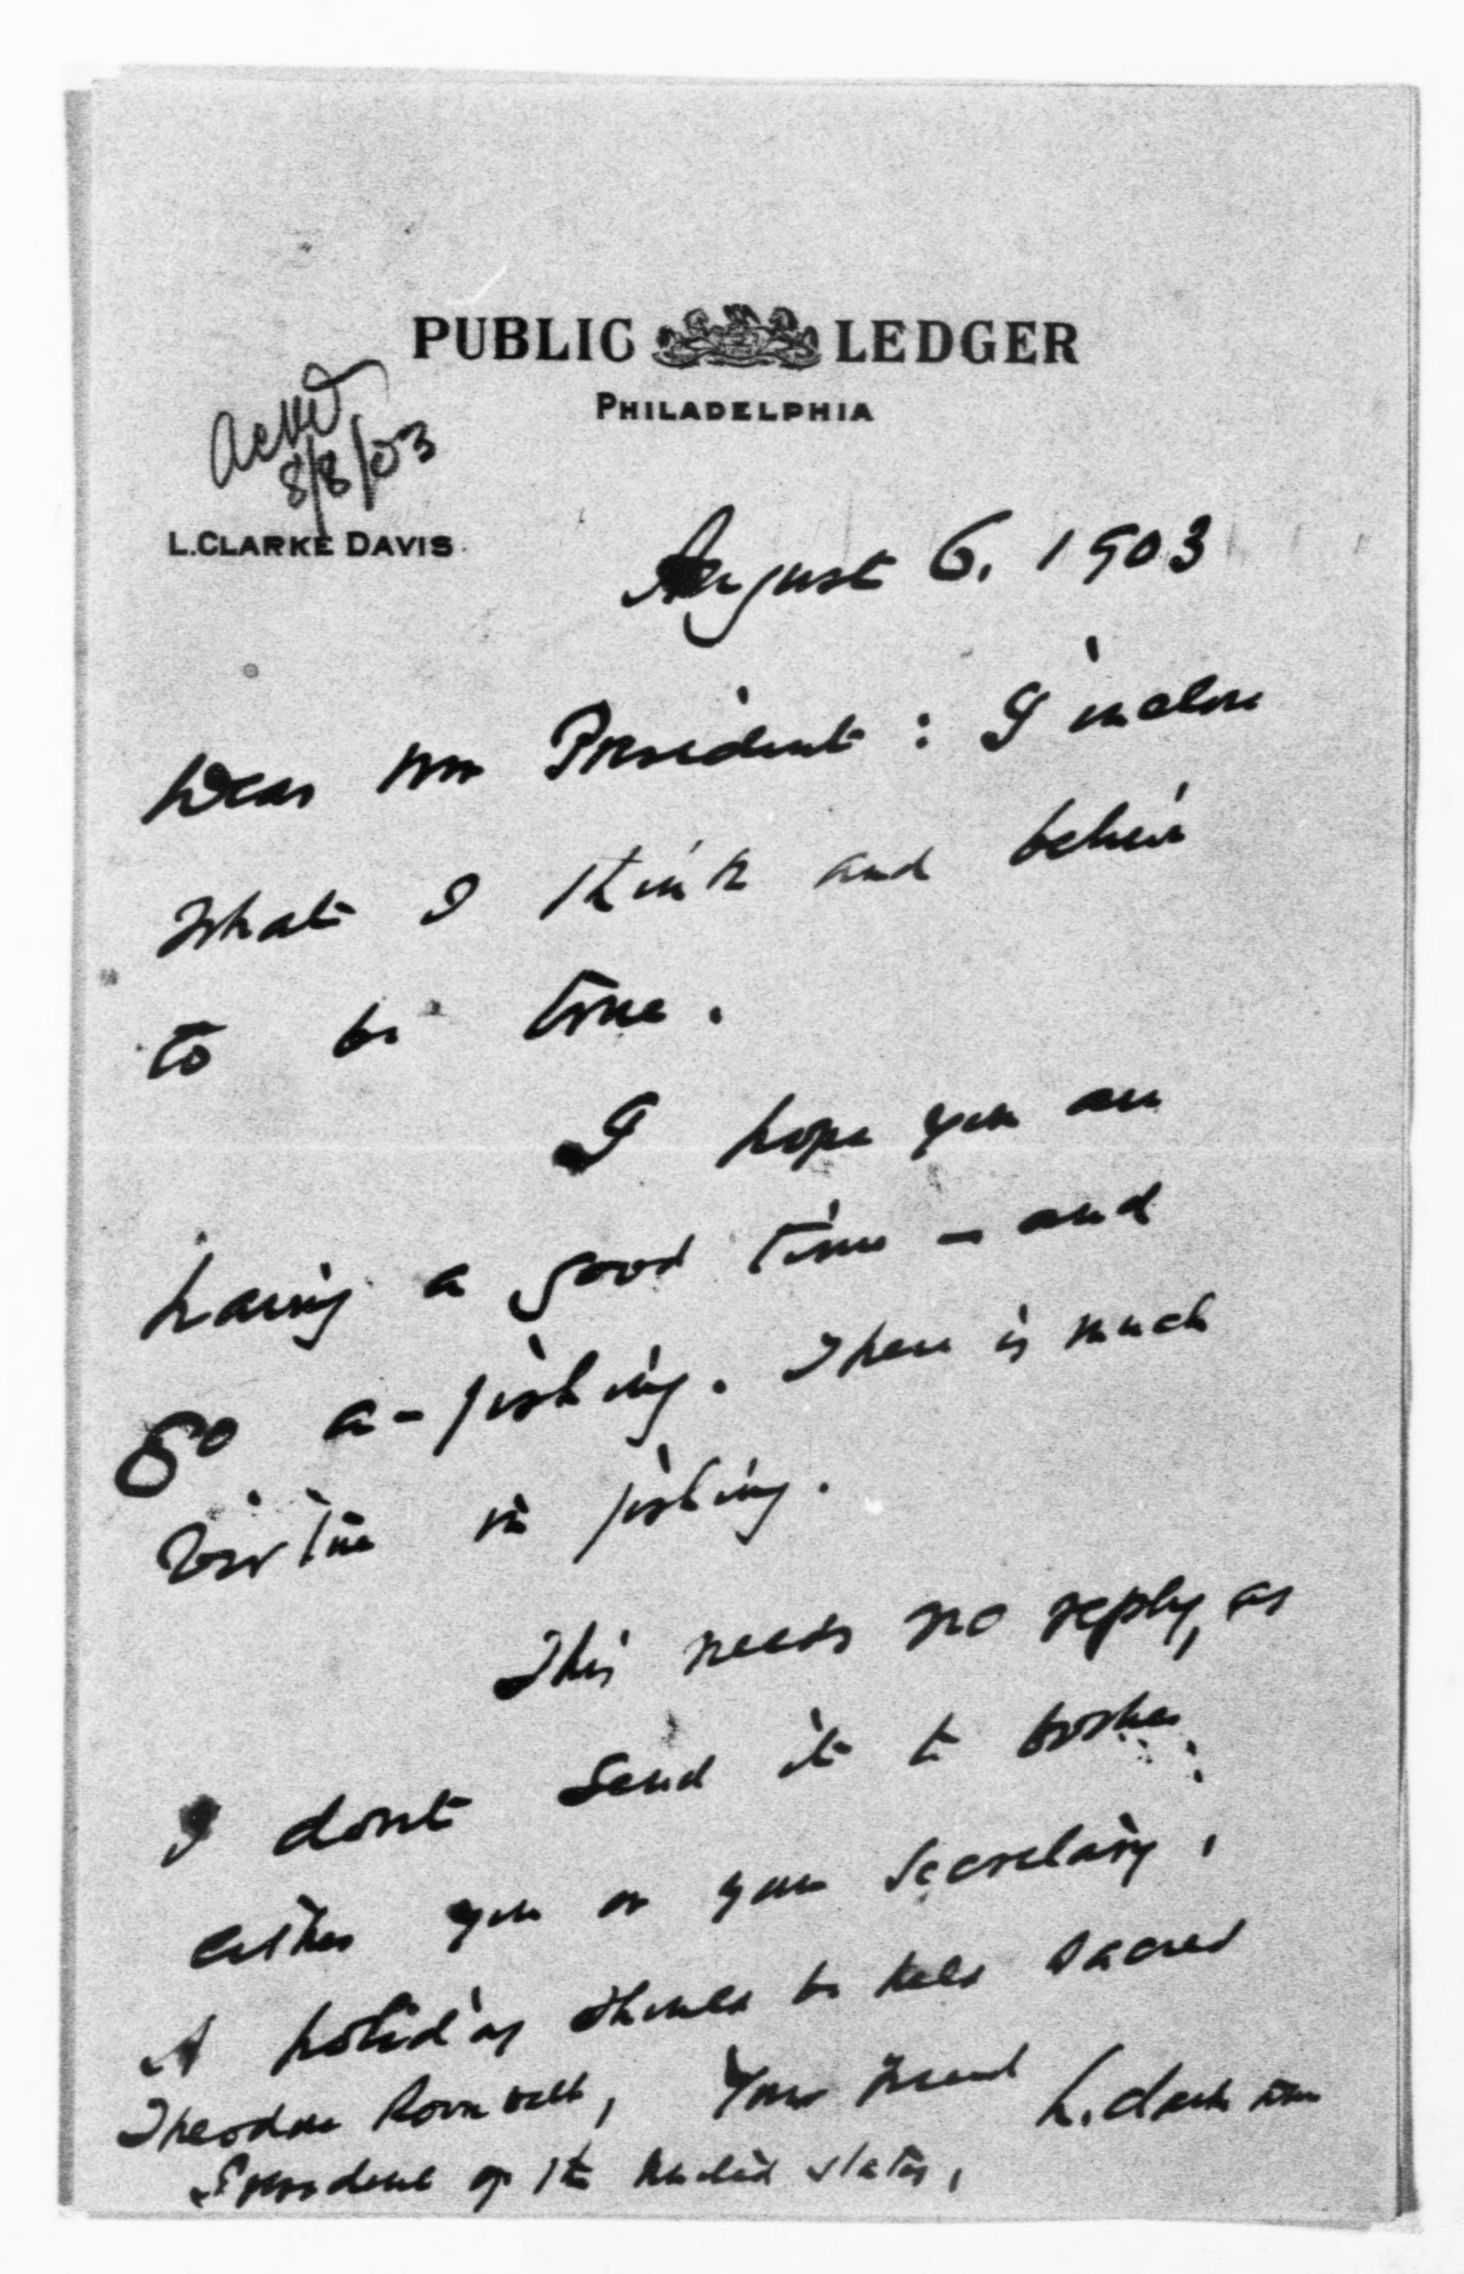 PUBLIC LEDGER
PHILADELPHIA
Ackd
8/8/03
L. CLARKE DAVIS
August 6, 1903
Dear Mr President: I inclose
what I think and believe
to be true.
I hope you are
having a good time - and
go a-fishing. There is much
virtue in fishing.
This needs no reply, as
I dont send it to bother
either you or your Secretary.
A holiday should be held sacred
Your friend
L. Clarke Davis
Theodore Roosevelt,
President of the United States.